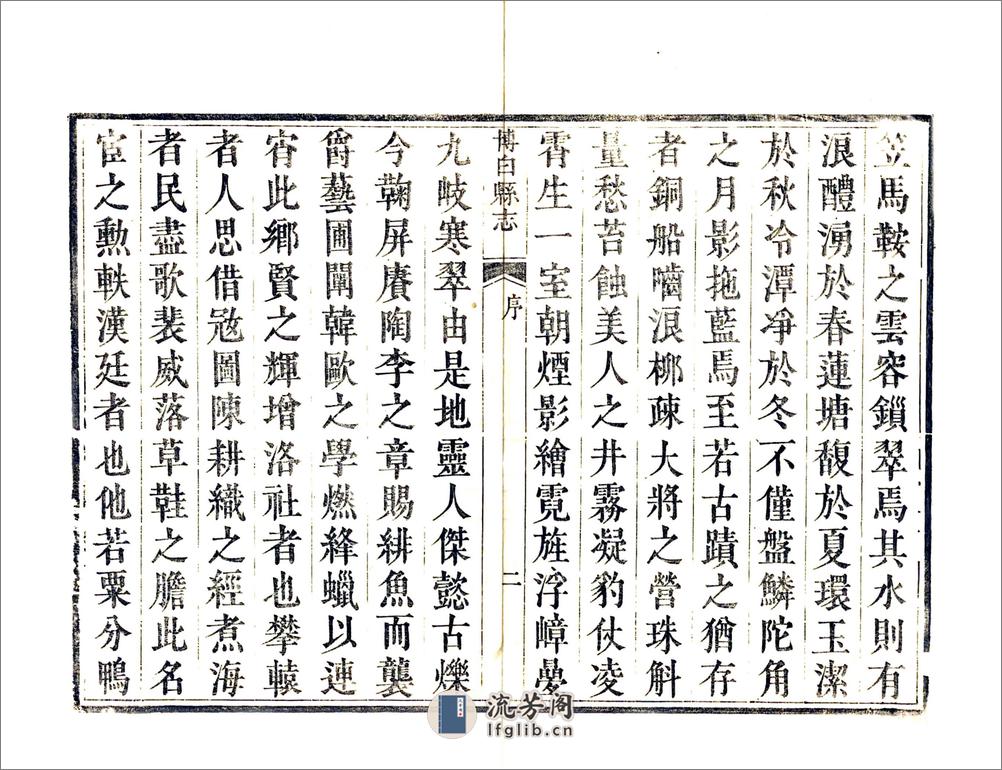 笠馬鞍之雲容鎖翠焉其水則有
浪醴湧於春蓮塘馥於夏環玉潔
於秋冷潭淨於冬不僅盤鱗陀角
之月影拖藍焉至若古蹟之猶存
者銅船嚙浪柳疎大將之營珠斛
量愁苔蝕美人之井霧凝豹仗凌
霄生一室朝煙影繪霓旌浮嶂疊
博白縣志
序
二
九岐寒翠由是地靈人傑懿古爍
今鞠屏賡陶李之章賜緋魚而襲
爵藝圃闡韓歐之學燃絳蠟以連
宵此鄉賢之輝增洛社者也攀轅
者人思借寇圖陳耕織之經煮海
者民盡歌裴威落草鞋之膽此名
宦之勳軼漢廷者也他若粟分鴨
流芳阁
lfglib.cn